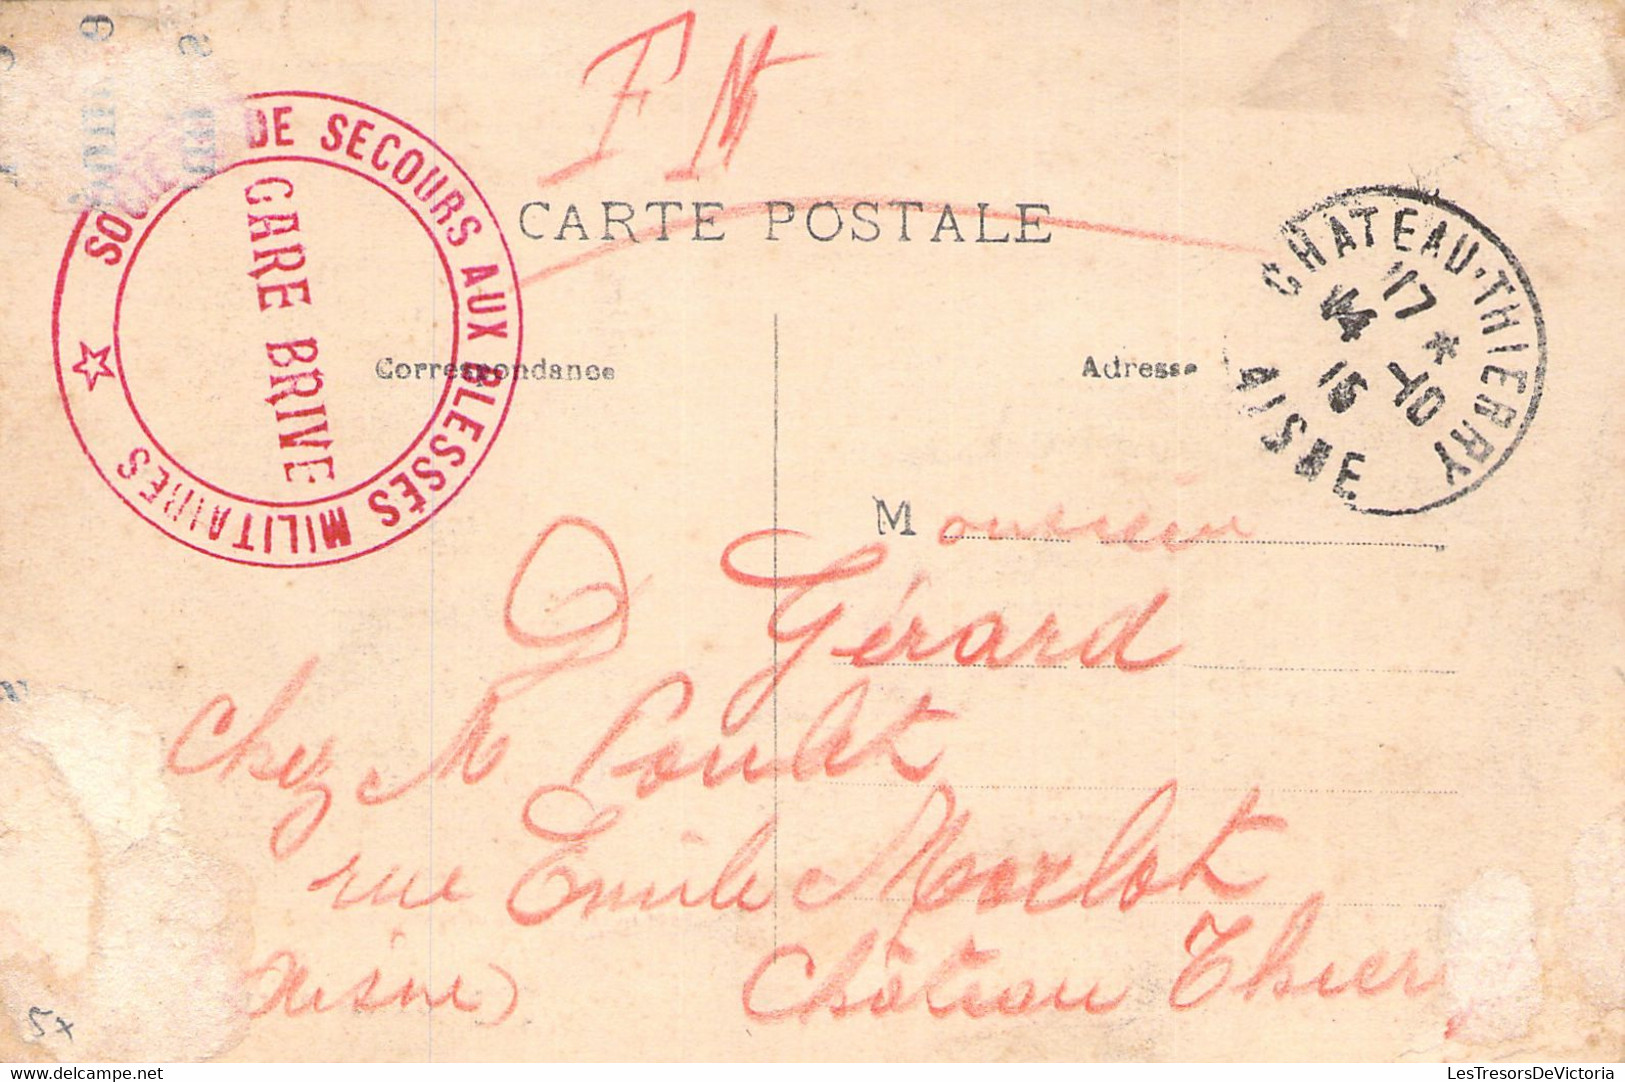 F M
CARTE POSTALE
SOCIÉTÉ DE SECOURS AUX BLESSÉS MILITAIRES
GARE BRIVE
CHATEAU-THIERRY
17 *
14 -10
15
AISNE
Correspondance
Adresse
Monsieur
G Gérard
chez M Poulet
rue Emile Morlot
Château Thierry
(Aisne)
5x
LesTresorsDeVictoria